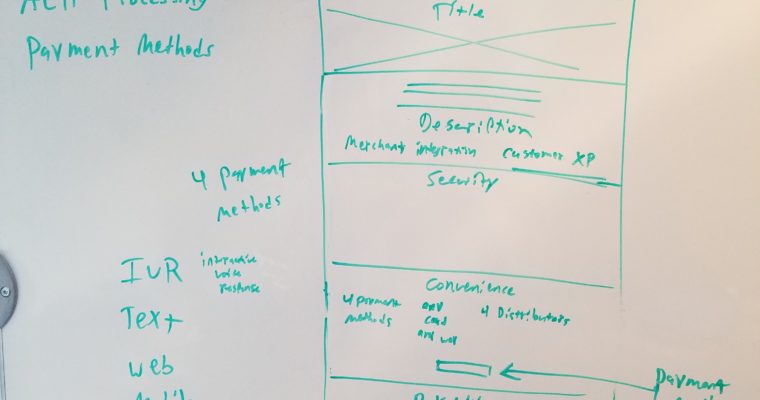 ACH Processing
Payment Methods
4 payment
methods
IVR interactive
voice
response
Text
Web
Title
Description
Merchant integration Customer XP
Security
Convenience
4 payment
methods
any
card
any
4 Distributors
payment